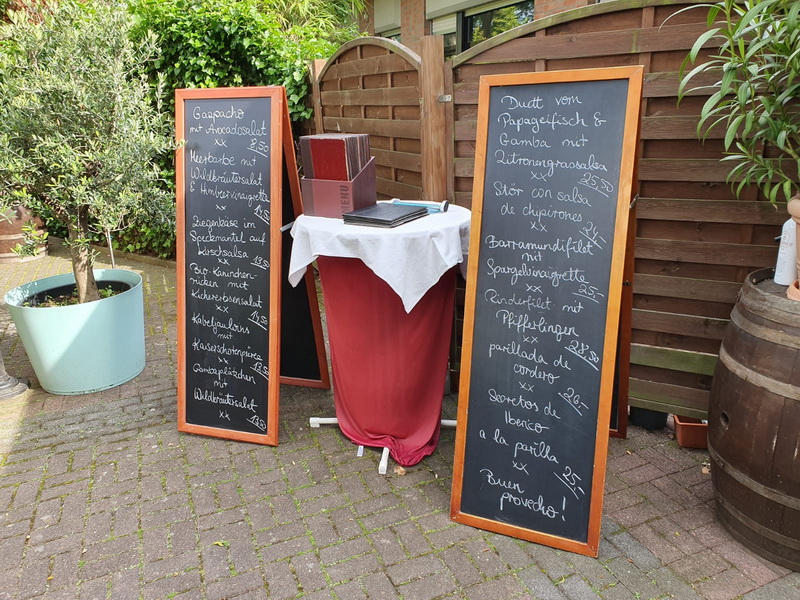 Gazpacho
mit Avocadosalat
xx 8,50
Meerbarbe mit
Wildkräutersalat
& Himbeervinaigrette
xx 14,50
Ziegenkäse im
Speckmantel auf
Kirschsalsa
xx 13,50
Bio-Kaninchen-
rücken mit
Kichererbsensalat
xx 14,50
Kabeljaulomo
mit
Kaiserschotenpüree
xx 13,50
Gambaplätzchen
mit
Wildkräutersalat
xx 13,50
MENU
Duett vom
Papageifisch &
Gamba mit
Zitronengrassalsa
xx 25,50
Stör con salsa
de chipirones
xx 24,-
Barramundifilet
mit
Spargelvinaigrette
xx 25,-
Rinderfilet mit
Pfifferlingen
xx 28,50
parillada de
cordero
xx 26,-
Secretos de
Iberico
a la parilla
xx 25,-
Buen
provecho!